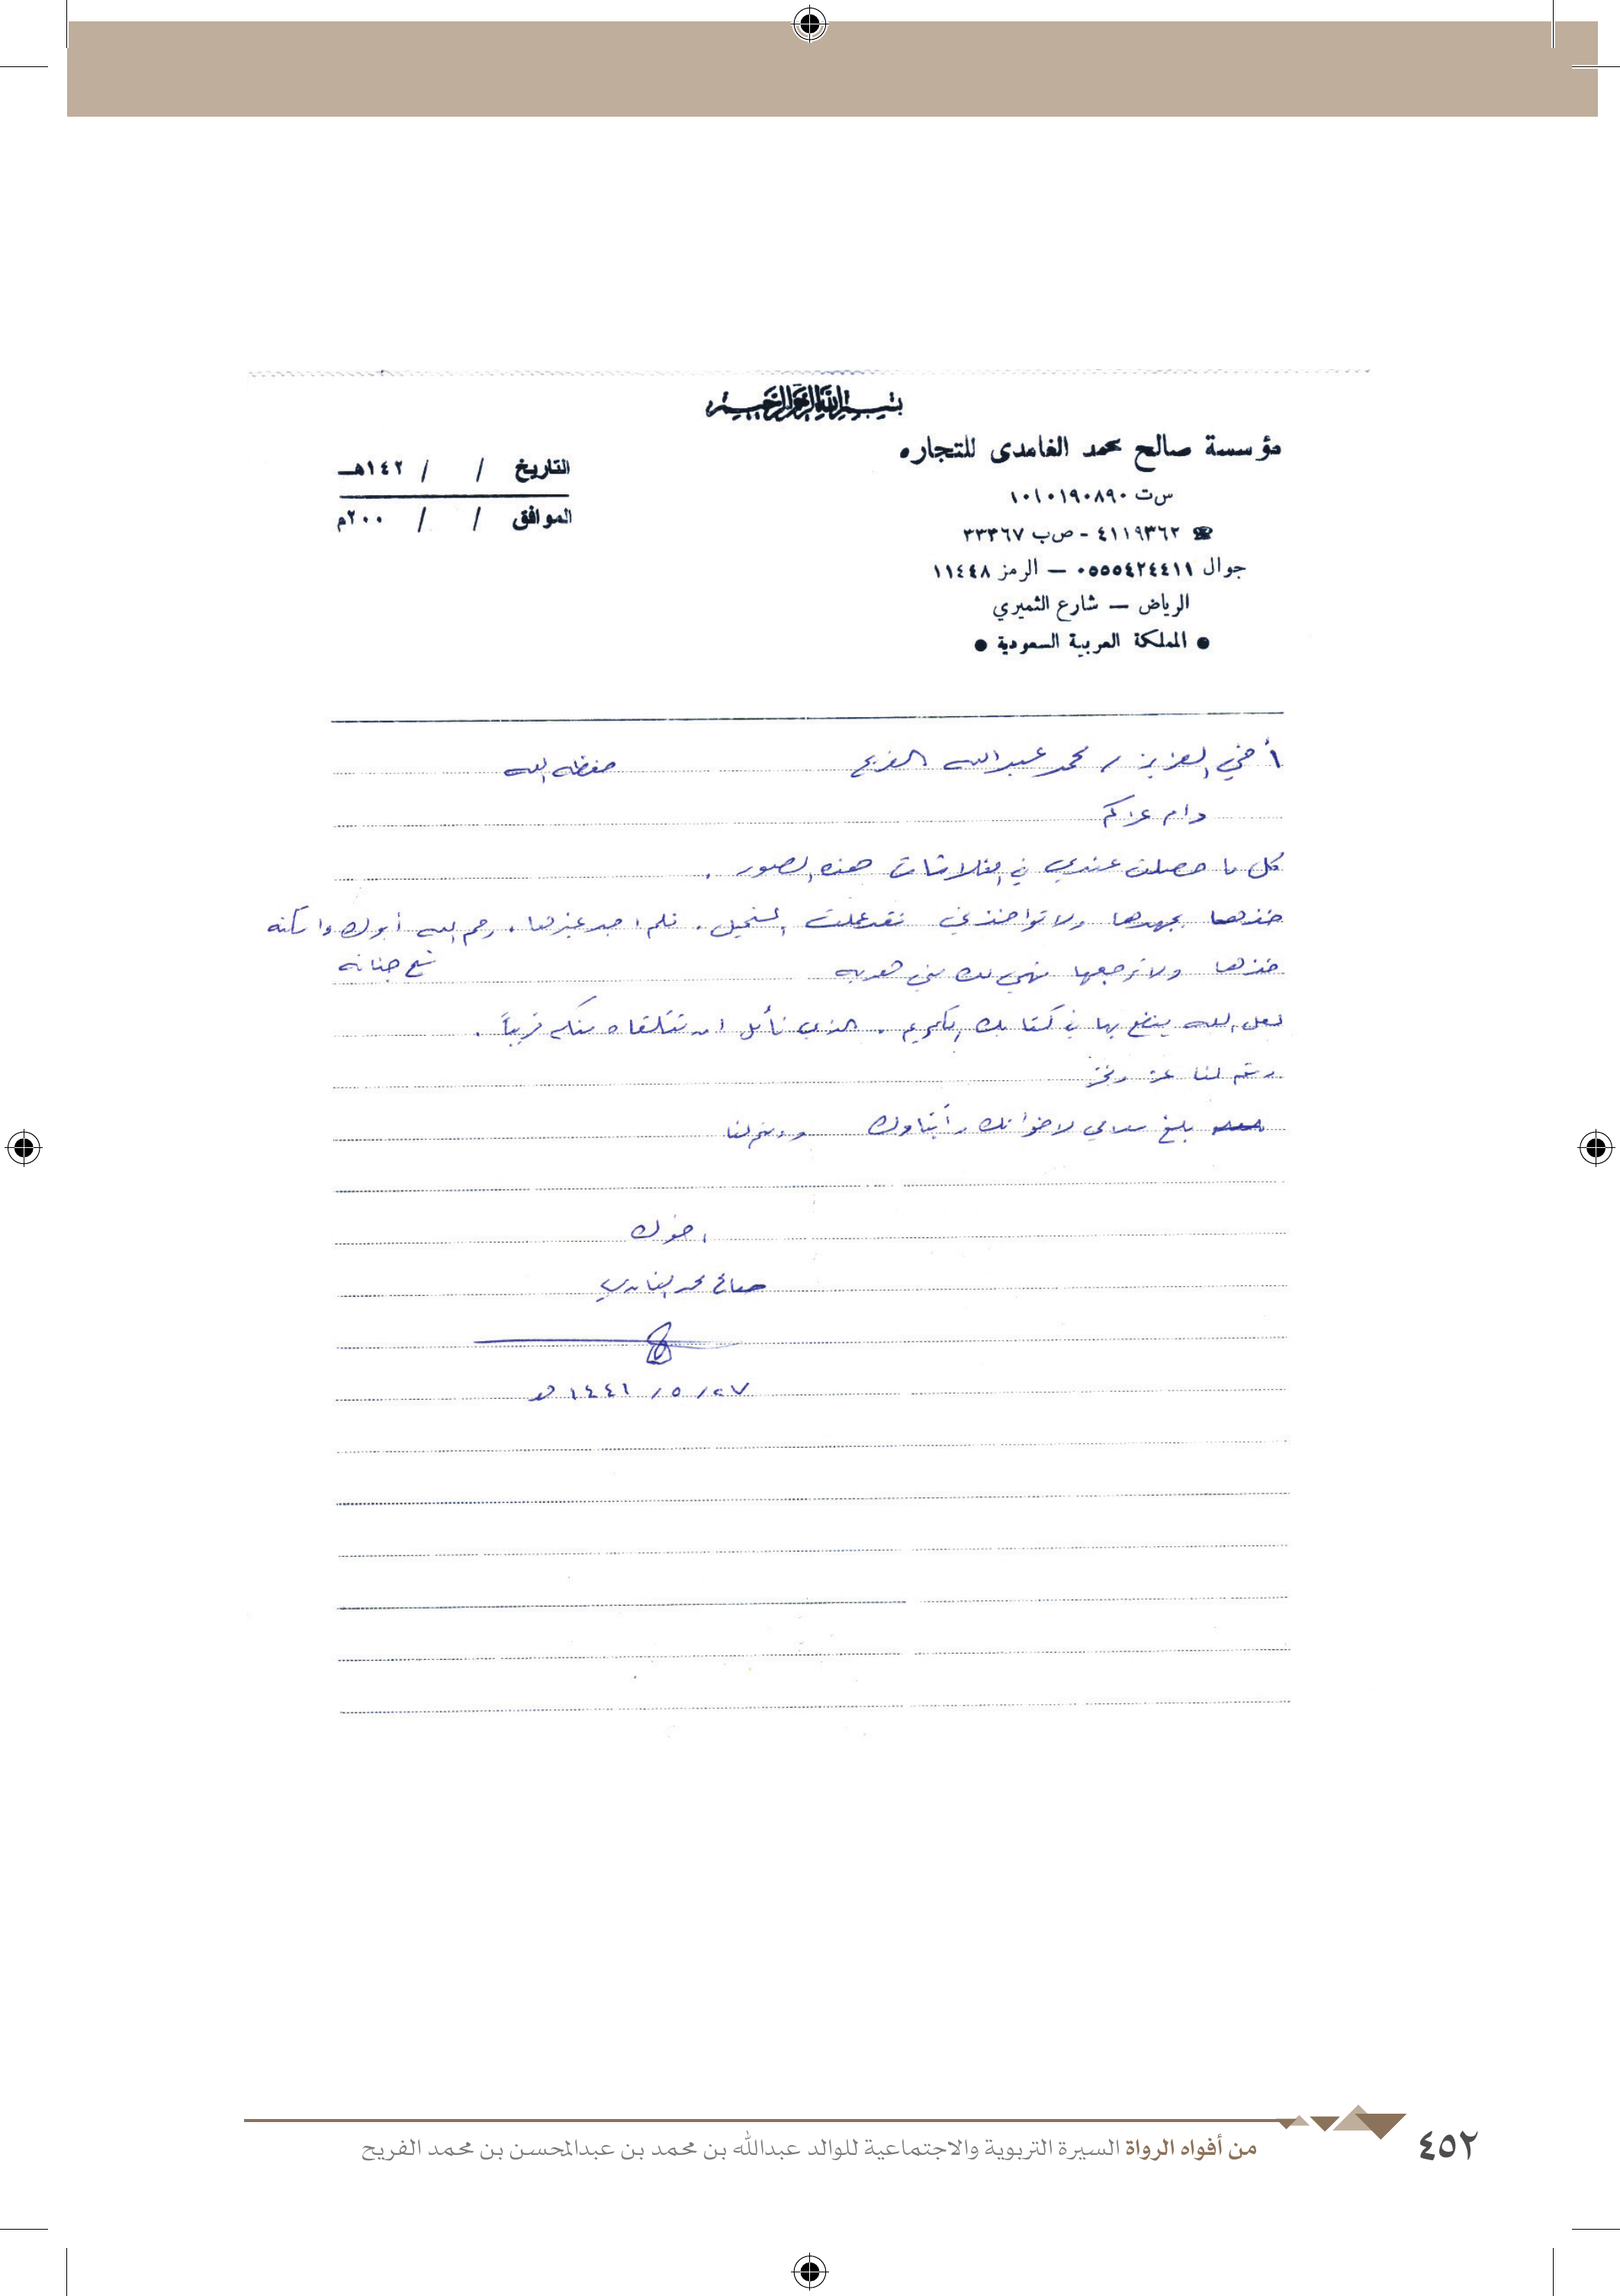 بسم الله الرحمن الرحيم
مؤسسة صالح محمد الغامدى للتجاره
س ت ١٠١٠١٩٠٨٩٠
☎ ٤١١٩٣٦٢ - ص ب ٣٣٣٦٧
جوال ٠٥٥٥٤٢٤٤١١ — الرمز ١١٤٤٨
الرياض — شارع الثميري
● المملكة العربية السعودية ●
التاريخ / / ١٤٢هـ
الموافق / / ٢٠٠م
أخي العزيز / محمد عبدالله الفريح حفظه الله
دام عزكم
كل ما حصلت عندي في الفلاشات هذه الصور .
خذها بجهدها ولا تواخذني فقد عملت المستحيل . فلم اجد غيرها . رحم الله أبوك واسكنه
فسيح جنانه
خذها ولا ترجعها فهي لك مني هديه
لعل الله ينفع بها في كتابك الكريم . الذي نأمل ان نتلقاه منكم قريباً .
ودمتم لنا عز وفخر
بلغ سلامي لاخوانك وأبناوك ودمتم لنا
اخوك
صالح محمد الغامدي
٢٧ / ٥ / ١٤٤١ هـ
من أفواه الرواة السيرة التربوية والاجتماعية للوالد عبدالله بن محمد بن عبدالمحسن بن محمد الفريح
٤٥٢